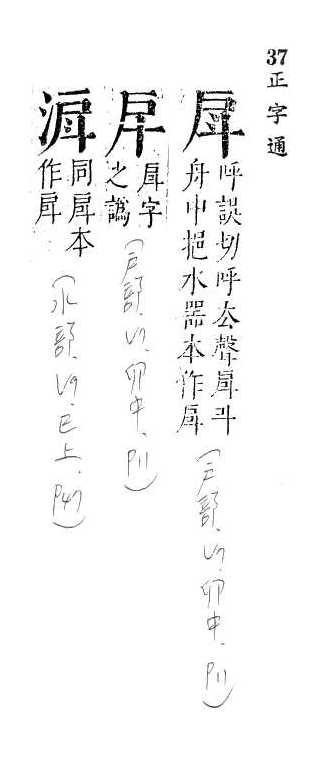 37 正字通
戽
呼誤切呼去聲戽斗
舟中挹水器本作戽
(戶部, 卯中, P11)
戽字
之譌
(戶部, 卯中, P11)
同戽本
作戽
(水部, 巳上, P47)